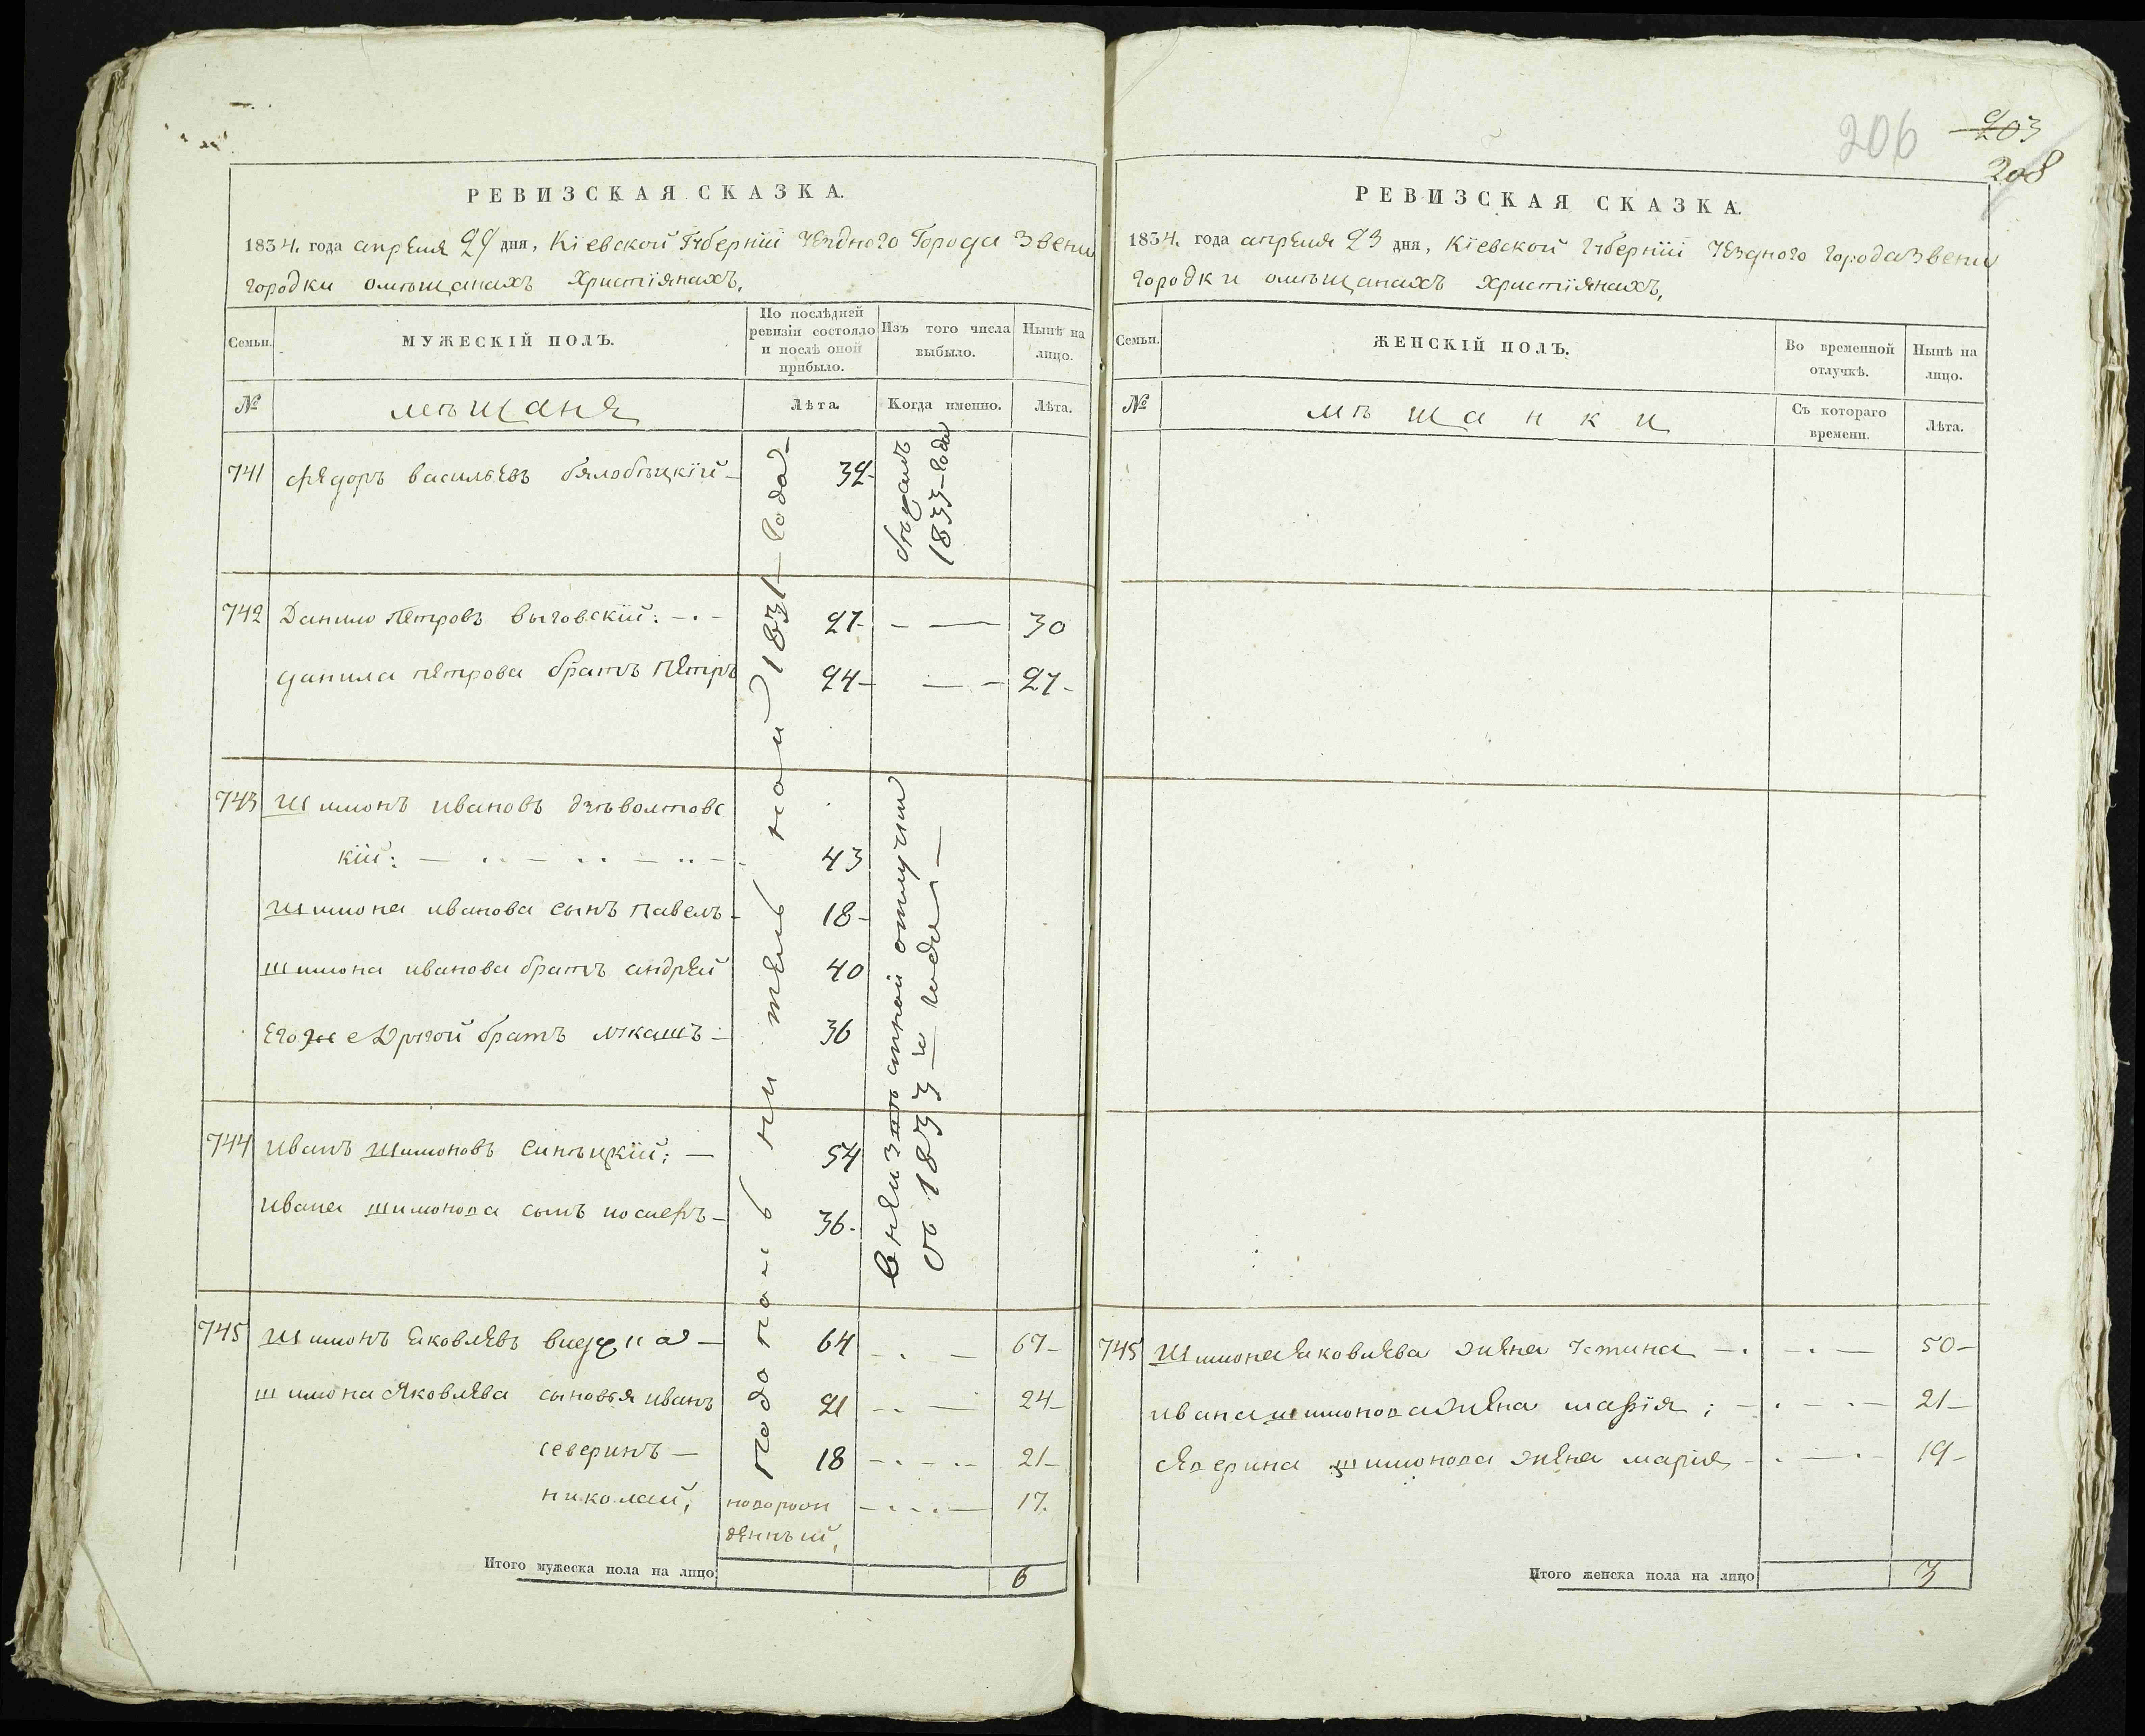 206
203
208
РЕВИЗСКАЯ СКАЗКА.
1834. года апреля 29 дня, Кіевской Губерніи Уезднаго Города Звени
городки о мѣщанахъ Христіянахъ,
Семьи.
МУЖЕСКІЙ ПОЛЪ.
По послѣдней
ревизіи состояло
и послѣ оной
прибыло.
Изъ того числа
выбыло.
Нынѣ на
лицо.
№
мѣщаня
Лѣта
Когда именно.
Лѣта.
741 Федоръ васильевъ бялобѣцкій 34
1833 года
742 Данило Петровъ выговскій: 27 30
данила петрова братъ Петръ 24 27
743 Шимонъ ивановъ дзѣволтовс
кій: 43
Шимона иванова сынъ павелъ 18
шимона иванова братъ андрей 40
Егоже Другой братъ лукашъ 36
въ неизвѣстной отлучки
съ 1833 года
744 иванъ Шимоновъ синѣцкій; 54
ивана шимонова сынъ иосифъ 36
По дополнительной 1831 года
745 Шимонъ яковлевъ 64 67
шимона Яковлева сыновья иванъ 21 24
северинъ 18 21
николай, новорож 17.
денный,
Итого мужеска пола на лицо 6
РЕВИЗСКАЯ СКАЗКА.
1834. года апреля 23 дня, Кіевской Губерніи Уезднаго города Звени
городки о мѣщанахъ Христіянахъ,
Семьи.
ЖЕНСКІЙ ПОЛЪ.
Во временной
отлучкѣ.
Нынѣ на
лицо.
№
мѣщанки
Съ котораго
времени.
Лѣта.
745 Шимона яковлева жена Устина 50
ивана шимонова жена марія; 21
северина шимонова жена марія 19
Итого женска пола на лицо 3